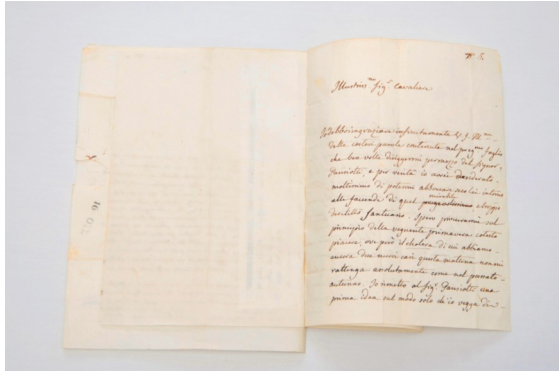 Illustris.mo Sig.r Cavaliere
Io debbo ringraziare infinitamente V. S. Ill.ma
delle cortesi parole contenute nel preg.mo foglio
che ben volle dirigermi permezzo del Signor
Pausiotti, e per verità io avrei desiderato
moltissimo di potermi abboccare seco lei intorno
alle faccende di quel
mirabile
alloggio
Spero
sul
principio della vegnente primavera cotesto
piacere, ove però il cholera di cui abbiamo
ancora due nuovi casi questa mattina non mi
rattenga assolutamente come nel passato
autunno. Io al Sig.r Pausiotti una
prima idea sul modo solo di io vegga di-
16 0